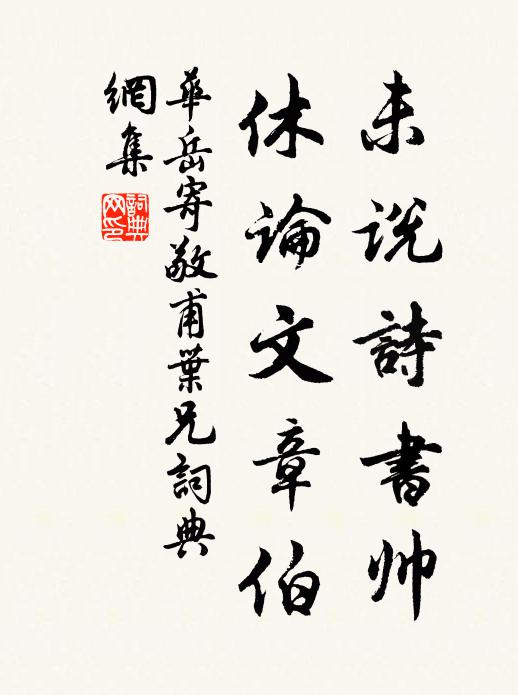 未說詩書帅
休論文章伯
華岳寄敬甫葉兄詞典
網集
詞典
网印